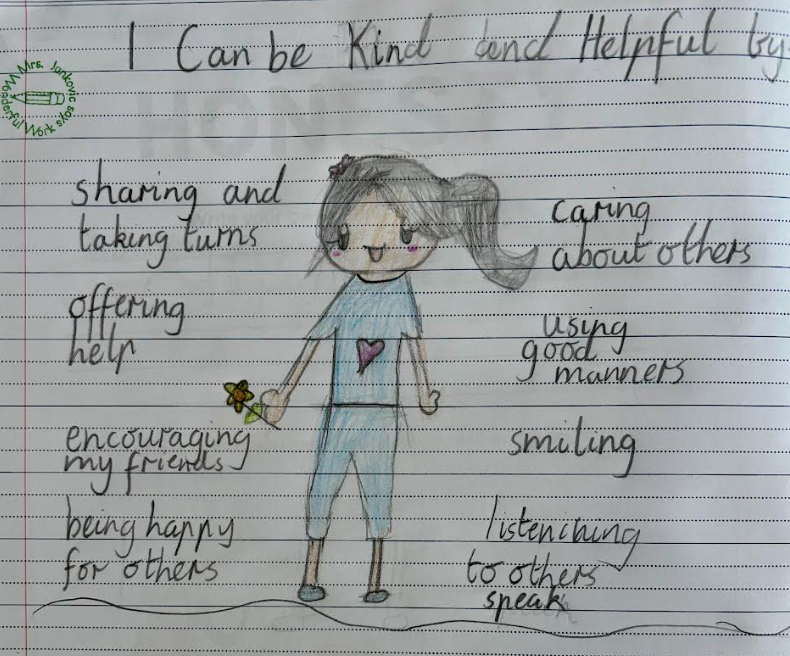 I Can be Kind and Helpful by
Mrs. Jankovic says
Wonderful Work
sharing and
taking turns
offering
help
encouraging
my friends
being happy
for others
caring
about others
using
good
manners
smiling
listenching
to others
speak